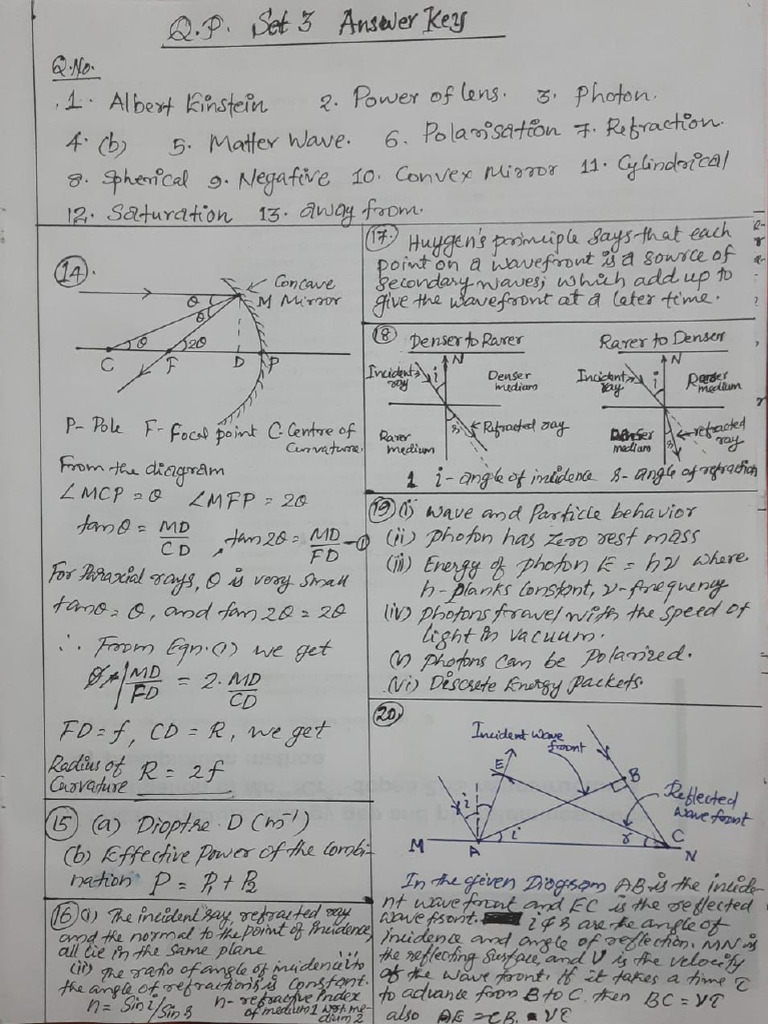 Q.P. Set 3 Answer Key
Q.No.
1. Albert Einstein 2. Power of lens. 3. Photon.
4. (b) 5. Matter Wave. 6. Polarisation 7. Refraction.
8. Spherical 9. Negative 10. Convex Mirror 11. Cylindrical
12. Saturation 13. away from.
14.
Concave
M Mirror
θ
θ
θ 2θ
C F D P
P- Pole F- Focal point C- Centre of
Curvature.
From the diagram
∠MCP = θ ∠MFP = 2θ
tanθ = MD/CD, tan2θ = MD/FD —①
For Paraxial rays, θ is very small
tanθ = θ, and tan 2θ = 2θ
∴ From Eqn.(1) we get
MD/FD = 2. MD/CD
FD = f, CD = R, we get
Radius of
Curvature R = 2f
15 (a) Dioptre. D (m⁻¹)
(b) Effective Power of the Combi-
nation P = P₁ + P₂
16 (i) The incident ray, refracted ray
and the normal to the point of incidence,
all lie in the same plane
(ii) The ratio of angle of incidence i to
the angle of refraction is constant.
n = Sin i/Sin r n- refractive index
of medium 1 w.r.t. me-
dium 2
17. Huygen's principle says that each
point on a wavefront is a source of
secondary waves, which add up to
give the wavefront at a later time.
18 Denser to Rarer Rarer to Denser
N N
Incident ray i Denser medium
Incident ray i Rarer medium
Rarer medium r Refracted ray
Denser medium r refracted ray
1 i- angle of incidence r- angle of refraction
19 (i) Wave and Particle behavior
(ii) photon has zero rest mass
(iii) Energy of photon E = hν where
h- planks Constant, ν- frequency
(iv) photons travel with the speed of
light in vacuum.
(v) photons can be Polarized.
(vi) Discrete Energy Packets.
20.
Incident wave
front
E B
Reflected
wave front
i i r
M A C N
In the given Diagram AB is the incide-
nt wave front and EC is the reflected
wave front. i & r are the angle of
incidence and angle of reflection. MN is
the reflecting surface and V is the velocity
of the wave front. If it takes a time τ
to advance from B to C. then BC = vτ
also AE = CB = vτ